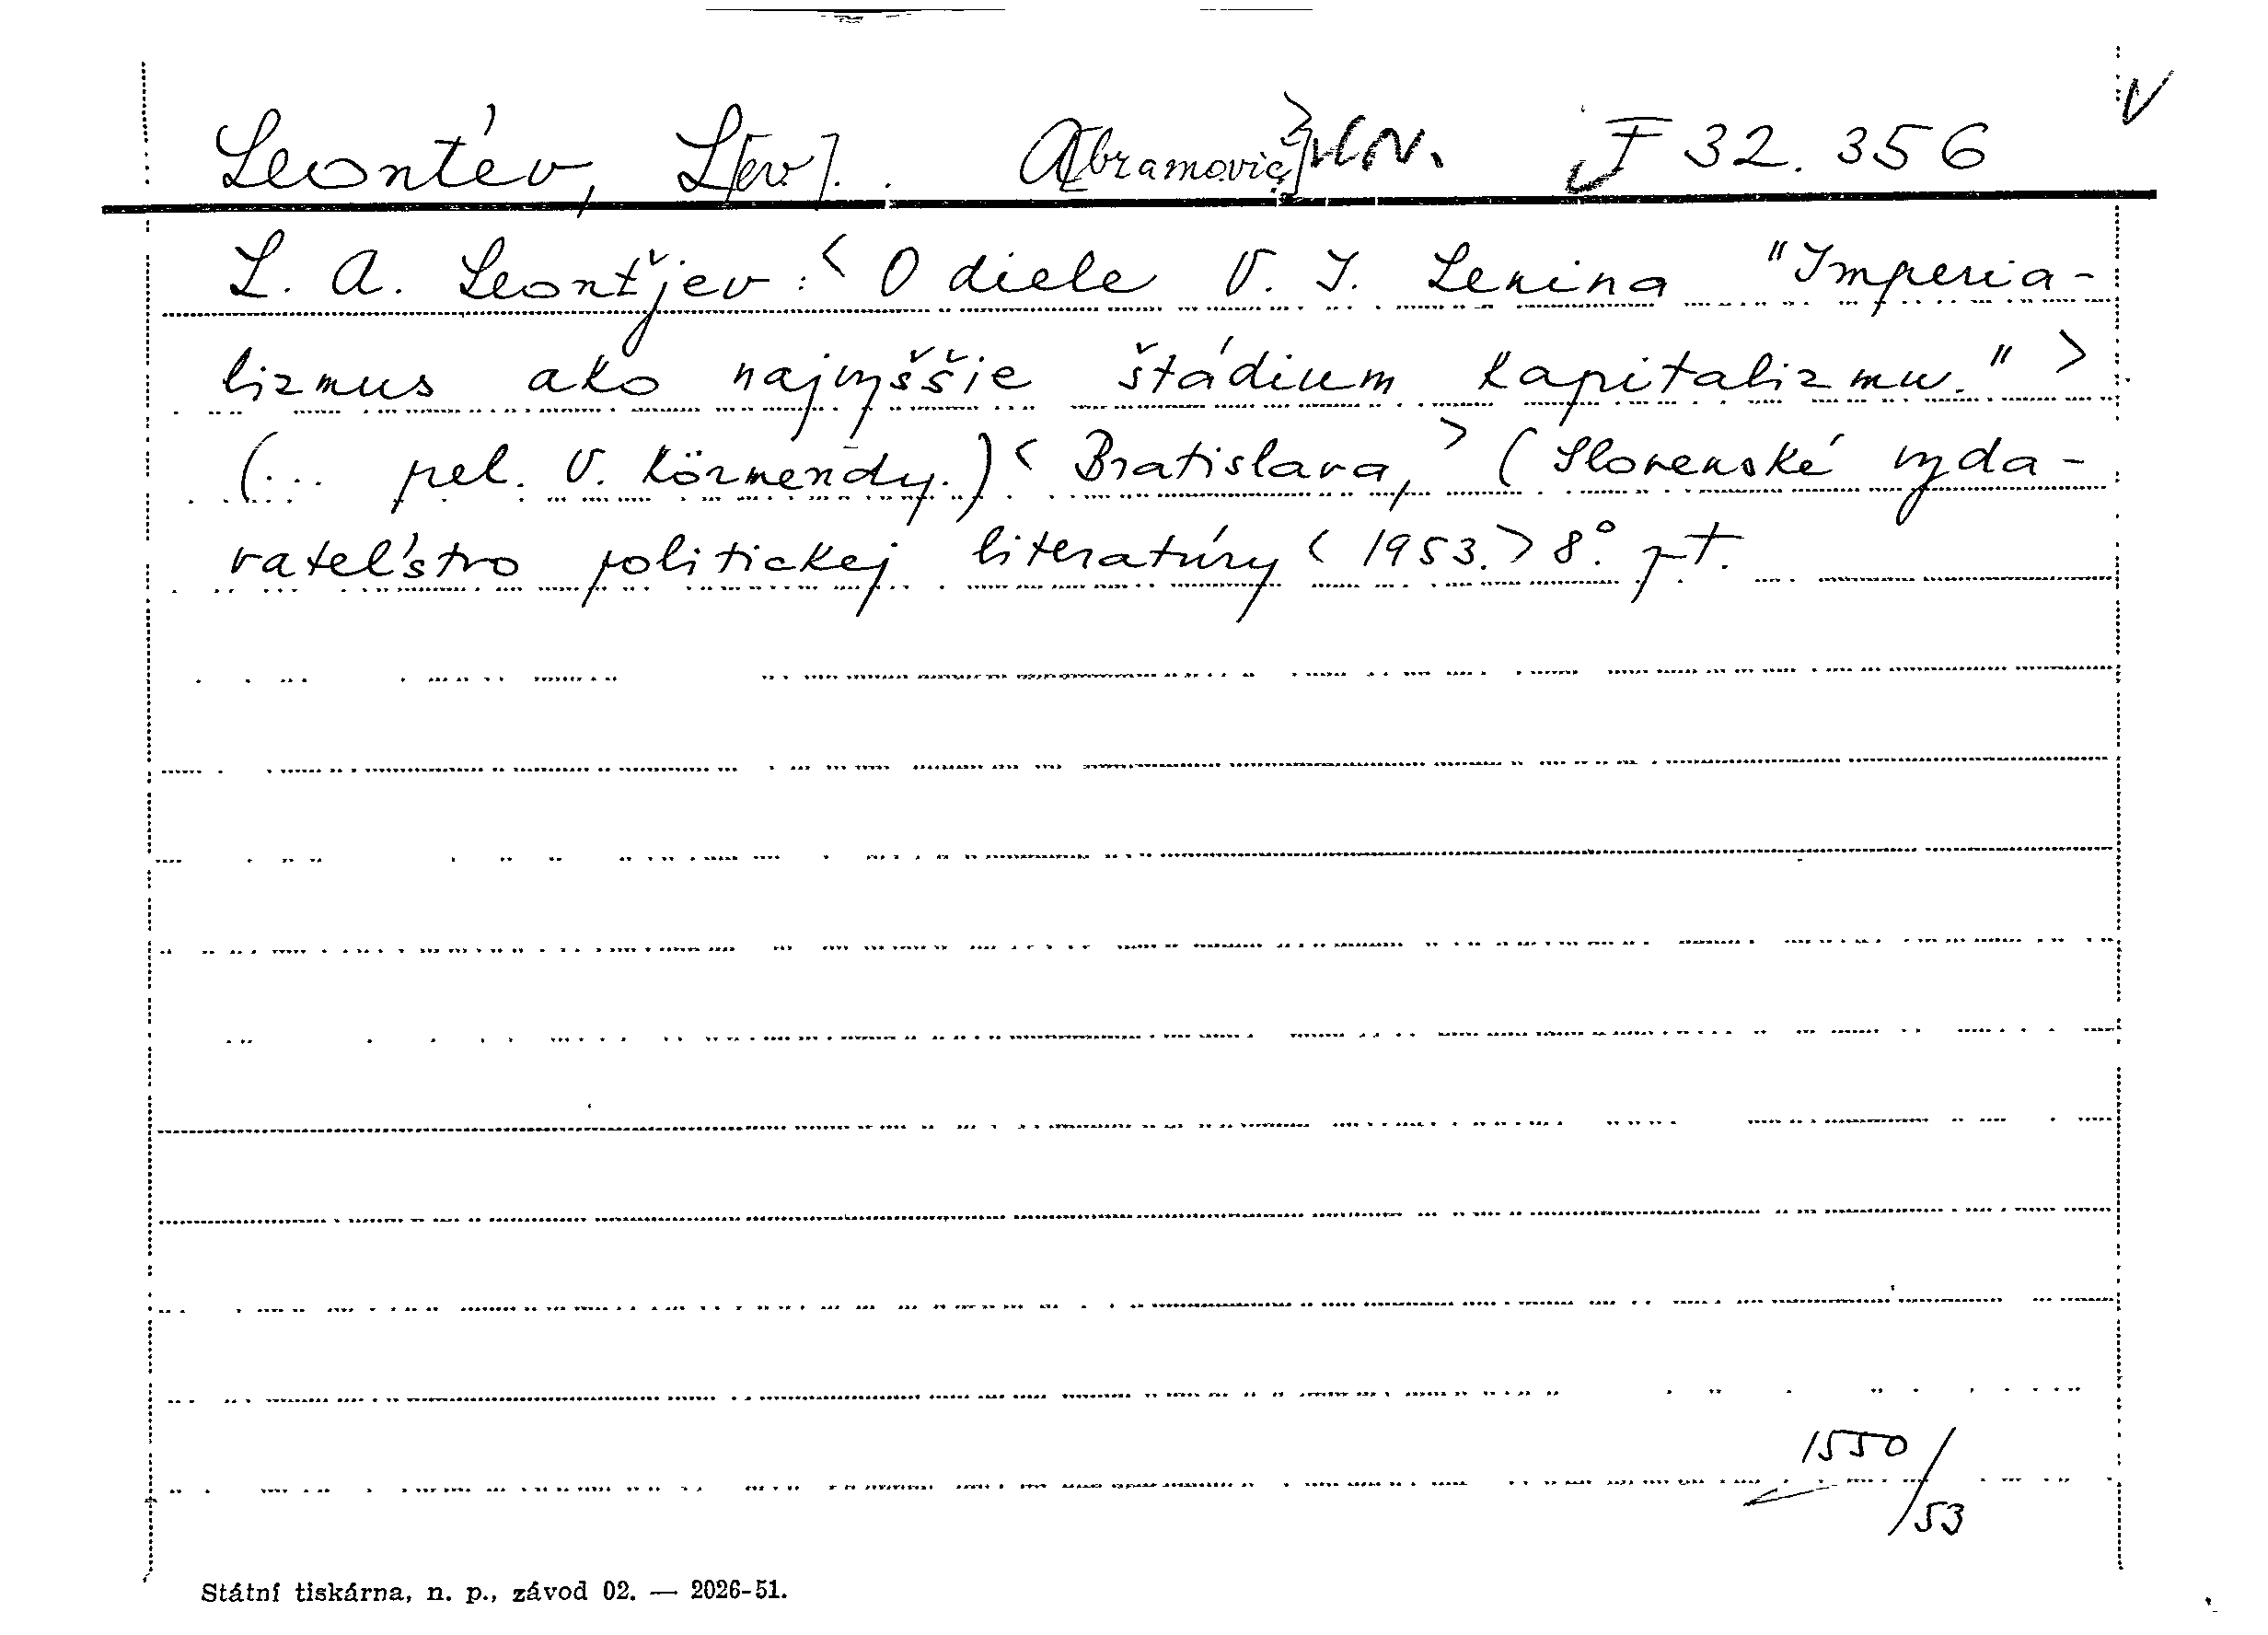 Leont'ev, L[ev]. A[bramovič] F 32.356
L. A. Leonťjev: < O diele V. I. Lenina "Imperia-
lizmus ako najvyššie štádium kapitalizmu." >
(... pel. V. Körmendy.) < Bratislava, > (Slovenské vyda-
vateľstvo politickej literatúry < 1953. > 8° pt.
1550/53
Státní tiskárna, n. p., závod 02. — 2026-51.